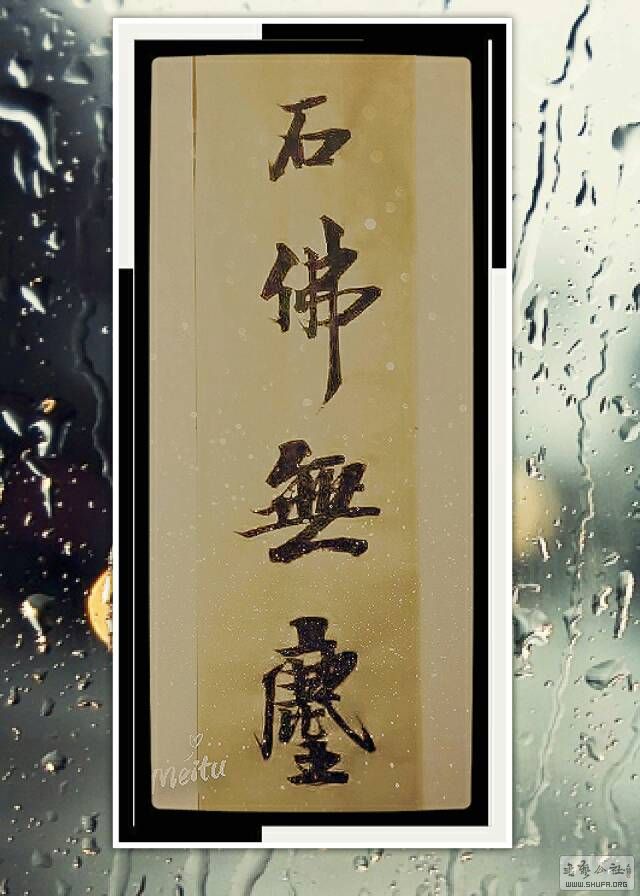 石
佛
無
塵
Meitu
WWW.SHUFA.ORG